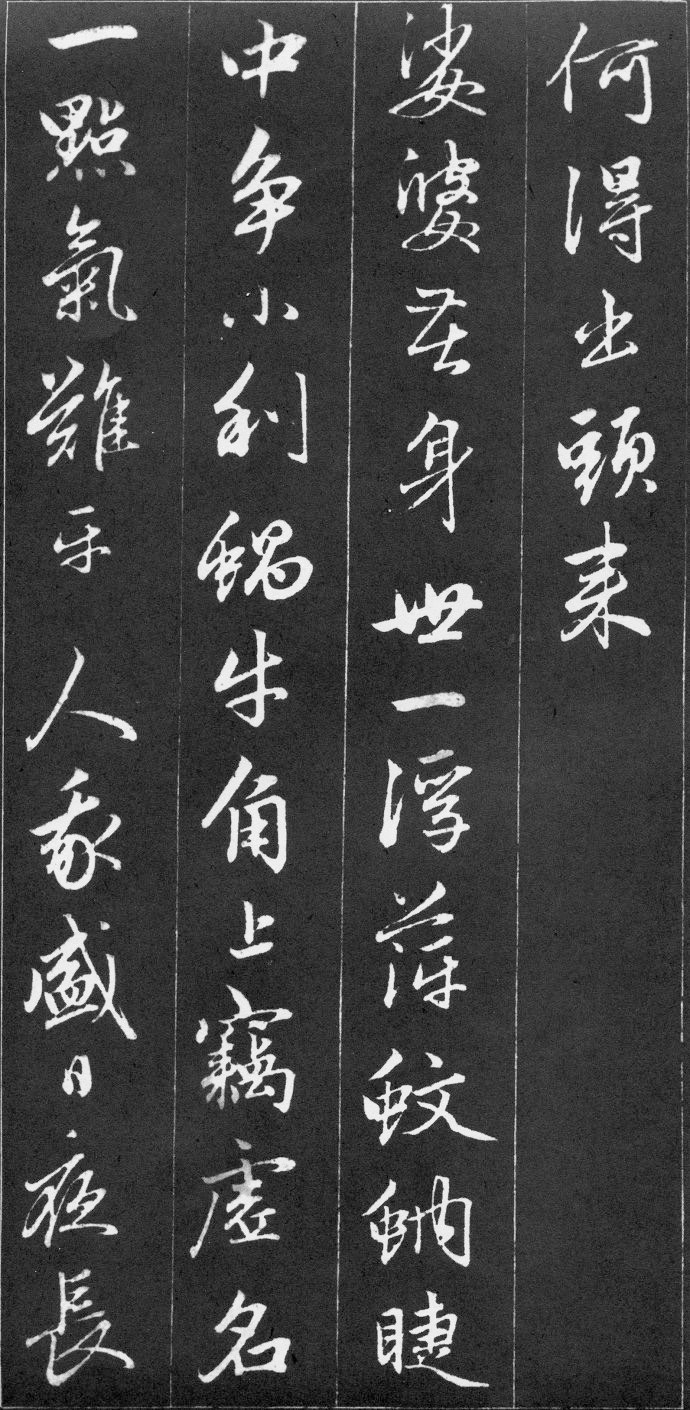 何得出頭来
娑婆苦身世一浮萍蚊蚋睫
中争小利蝸牛角上竊虚名
一點氣難平人我盛日夜長